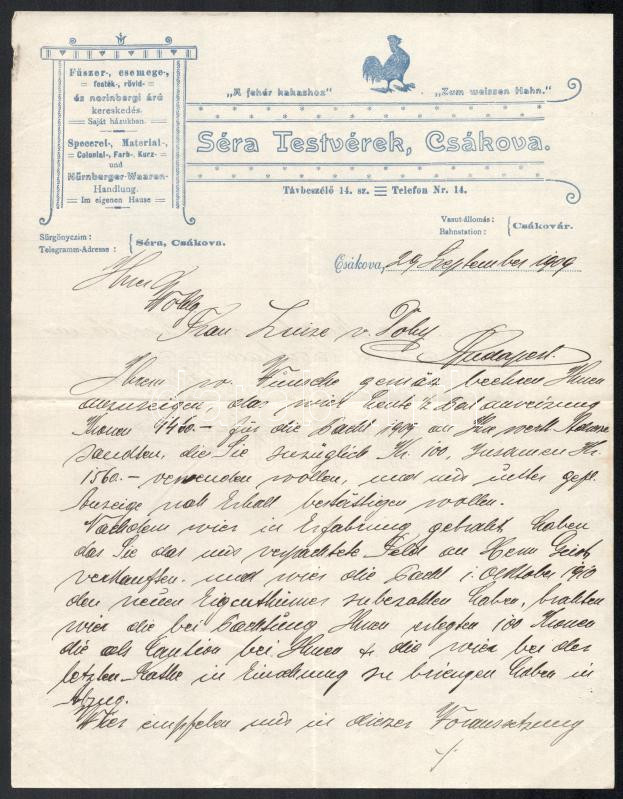 Fűszer-, csemege-,
festék-, rövid-
és norinbergi árú
kereskedés.
Saját házukban.
Specerei-, Material-,
Colonial-, Farb-, Kurz-
und
Nürnberger-Waaren-
Handlung.
Im eigenen Hause
„A fehér kakashoz" „Zum weissen Hahn."
Séra Testvérek, Csákova.
Távbeszélő 14. sz. Telefon Nr. 14.
Sürgönyczim:
Telegramm-Adresse: Séra, Csákova.
Vasut-állomás:
Bahnstation: Csákovár.
Csákova, 29 September 1909
Frau Luise v.
Budapest.
Ihrem w. Wunsche gemäs beehren Ihnen
anzuzeigen, das wier heute ½ Postanweisung
Kronen 1460.- für die Pacht 1909 an Ihre werte Adresse
sandten, die Sie zuzüglich Kr. 100, zusammen Kr.
1560.- verwenden wollen, und uns unter gefl.
Anzeige nach Erhalt bestättigen wollen.
Nachdem wier in Erfahrung gebracht haben
das Sie das uns verpachtete Feld an Herrn
verkauften und wier die Pacht 1. Oktober 1910
den neuen Eigenthümer zubezahlen haben, brachten
wier die bei Pachtung Ihnen erlegten 100 Kronen
die als Caution bei Ihnen & die wier bei der
letzten Rathe in Einrechnung zu briengen haben in
Abzug.
Wier empfehlen uns in dieser Voraussetzung